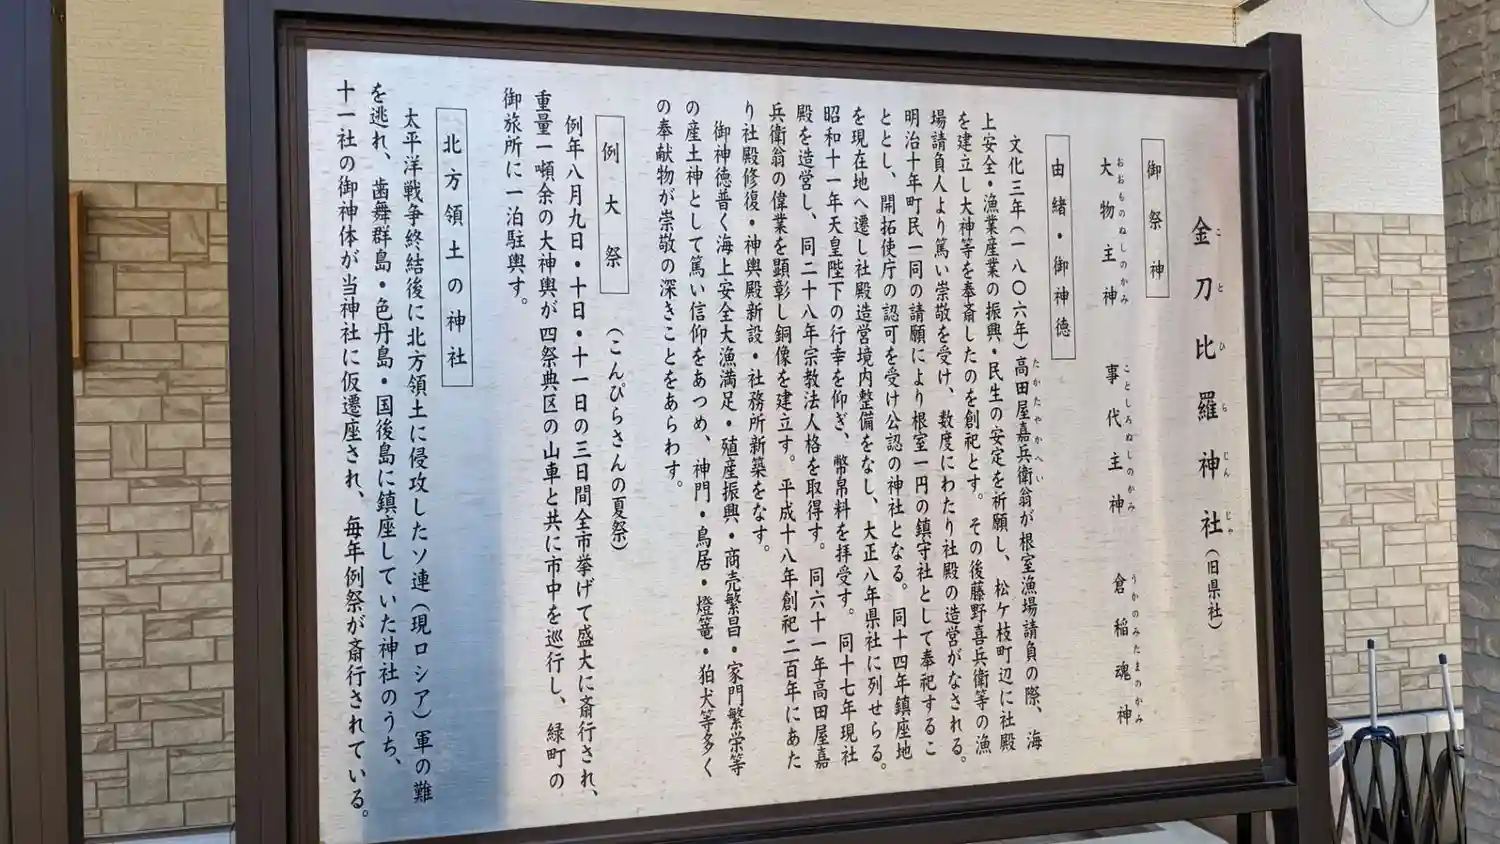 金刀比羅神社(旧県社)
こ と ひ ら じん じや
御祭神
大物主神 事代主神 倉稲魂神
おおものぬしのかみ ことしろぬしのかみ うかのみたまのかみ
由緒・御神徳
文化三年(一八〇六年)高田屋嘉兵衛翁が根室漁場請負の際、海
たかたやかへい
上安全・漁業産業の振興・民生の安定を祈願し、松ケ枝町辺に社殿
を建立し大神等を奉斎したのを創祀とす。その後藤野喜兵衛等の漁
場請負人より篤い崇敬を受け、数度にわたり社殿の造営がなされる。
明治十年町民一同の請願により根室一円の鎮守社として奉祀するこ
ととし、開拓使庁の認可を受け公認の神社となる。同十四年鎮座地
を現在地へ遷し社殿造営境内整備をなし、大正八年県社に列せらる。
昭和十一年天皇陛下の行幸を仰ぎ、幣帛料を拝受す。同十七年現社
殿を造営し、同二十八年宗教法人格を取得す。同六十一年高田屋嘉
兵衛翁の偉業を顕彰し銅像を建立す。平成十八年創祀二百年にあた
り社殿修復・神輿殿新設・社務所新築をなす。
御神徳普く海上安全大漁満足・殖産振興・商売繁昌・家門繁栄等
の産土神として篤い信仰をあつめ、神門・鳥居・燈篭・狛犬等多く
の奉献物が崇敬の深きことをあらわす。
例大祭 (こんぴらさんの夏祭)
例年八月九日・十日・十一日の三日間全市挙げて盛大に斎行され、
重量一噸余の大神輿が四祭典区の山車と共に市中を巡行し、緑町の
御旅所に一泊駐輿す。
北方領土の神社
太平洋戦争終結後に北方領土に侵攻したソ連(現ロシア)軍の難
を逃れ、歯舞群島・色丹島・国後島に鎮座していた神社のうち、
十一社の御神体が当神社に仮遷座され、毎年例祭が斎行されている。